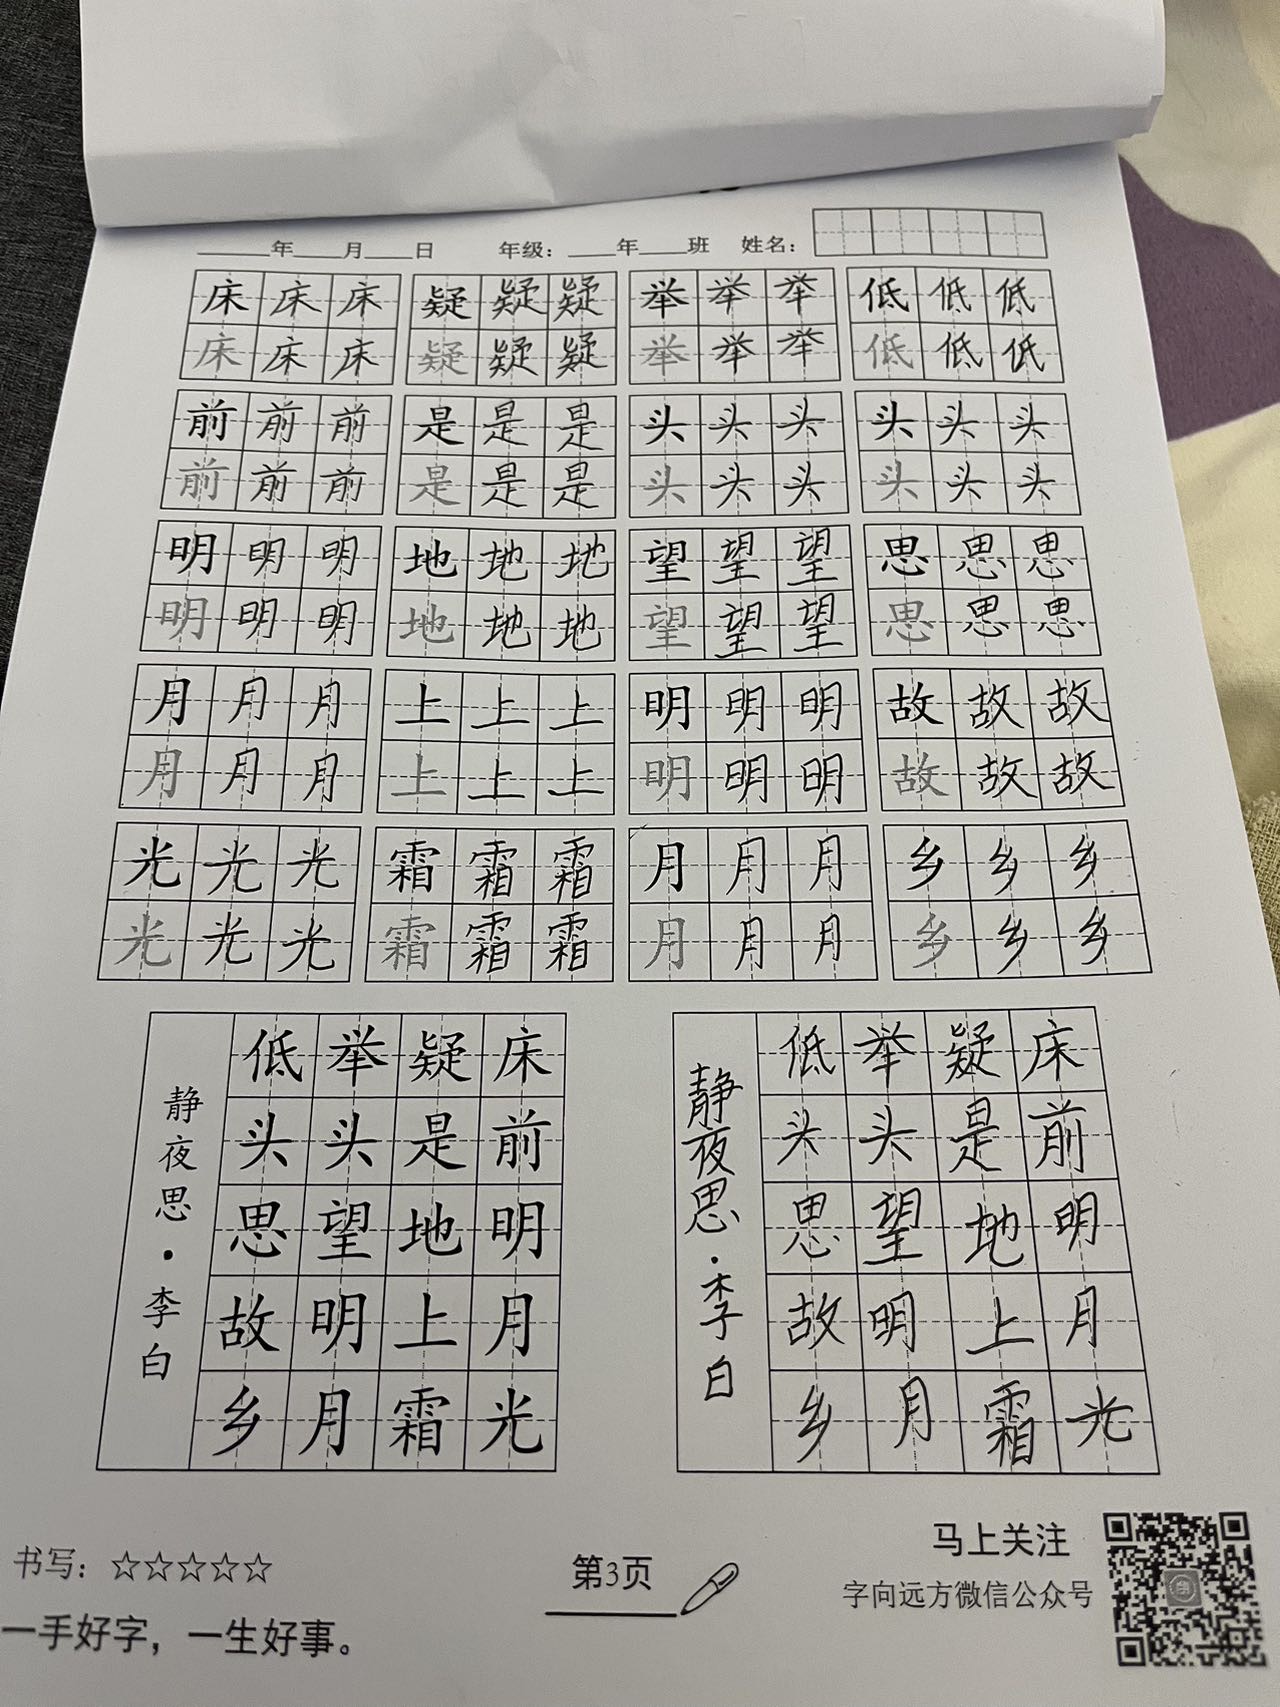 年 月 日 年级： 年 班 姓名：
床床床 疑疑疑 举举举 低低低
床床床 疑疑疑 举举举 低低低
前前前 是是是 头头头 头头头
前前前 是是是 头头头 头头头
明明明 地地地 望望望 思思思
明明明 地地地 望望望 思思思
月月月 上上上 明明明 故故故
月月月 上上上 明明明 故故故
光光光 霜霜霜 月月月 乡乡乡
光光光 霜霜霜 月月月 乡乡乡
床前明月光
疑是地上霜
举头望明月
低头思故乡
静夜思·李白
床前明月光
疑是地上霜
举头望明月
低头思故乡
静夜思·李白
书写：☆☆☆☆☆
一手好字，一生好事。
第3页
马上关注
字向远方微信公众号